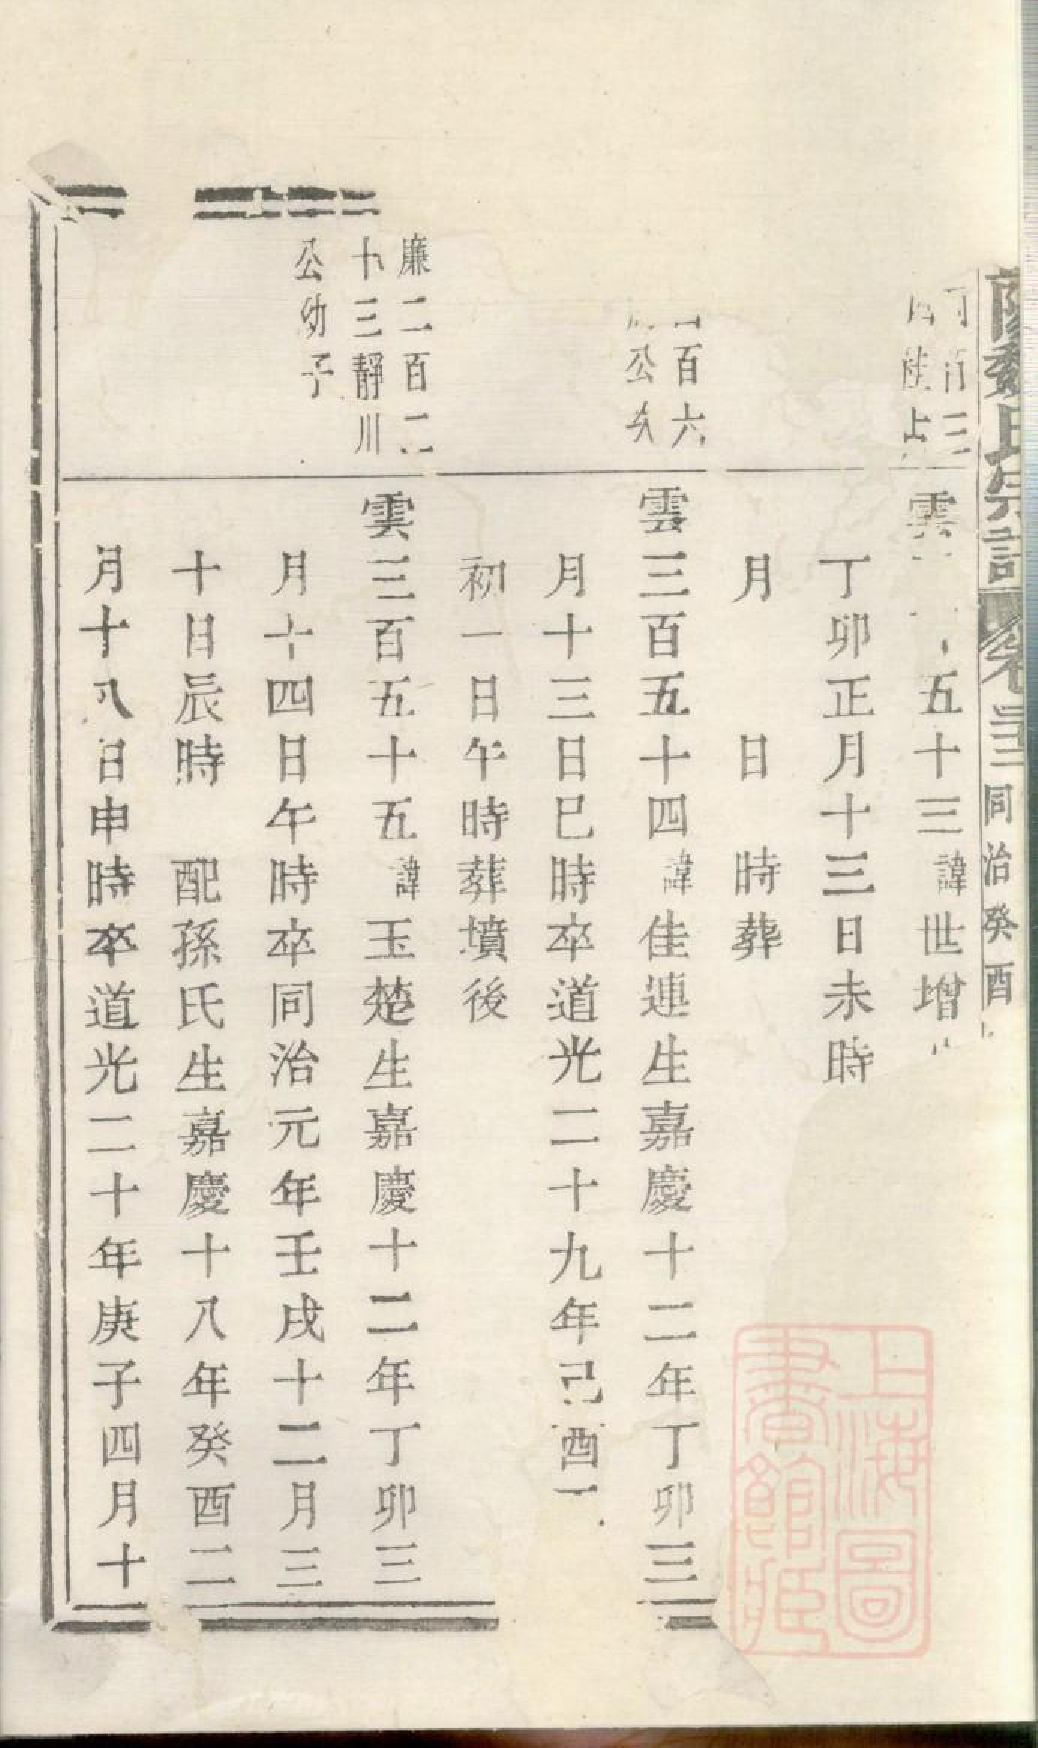 魏氏宗譜 卷三 同治癸酉
雲 五十三諱世增
丁卯正月十三日未時
月 日 時葬
百六
公
雲三百五十四諱佳連生嘉慶十二年丁卯三
月十三日巳時卒道光二十九年己酉
初一日午時葬墳後
廉二百二
十三靜川
公幼子
雲三百五十五諱玉楚生嘉慶十二年丁卯三
月十四日午時卒同治元年壬戌十二月三
十日辰時 配孫氏生嘉慶十八年癸酉二
月十八日申時卒道光二十年庚子四月十
上海圖
書館藏